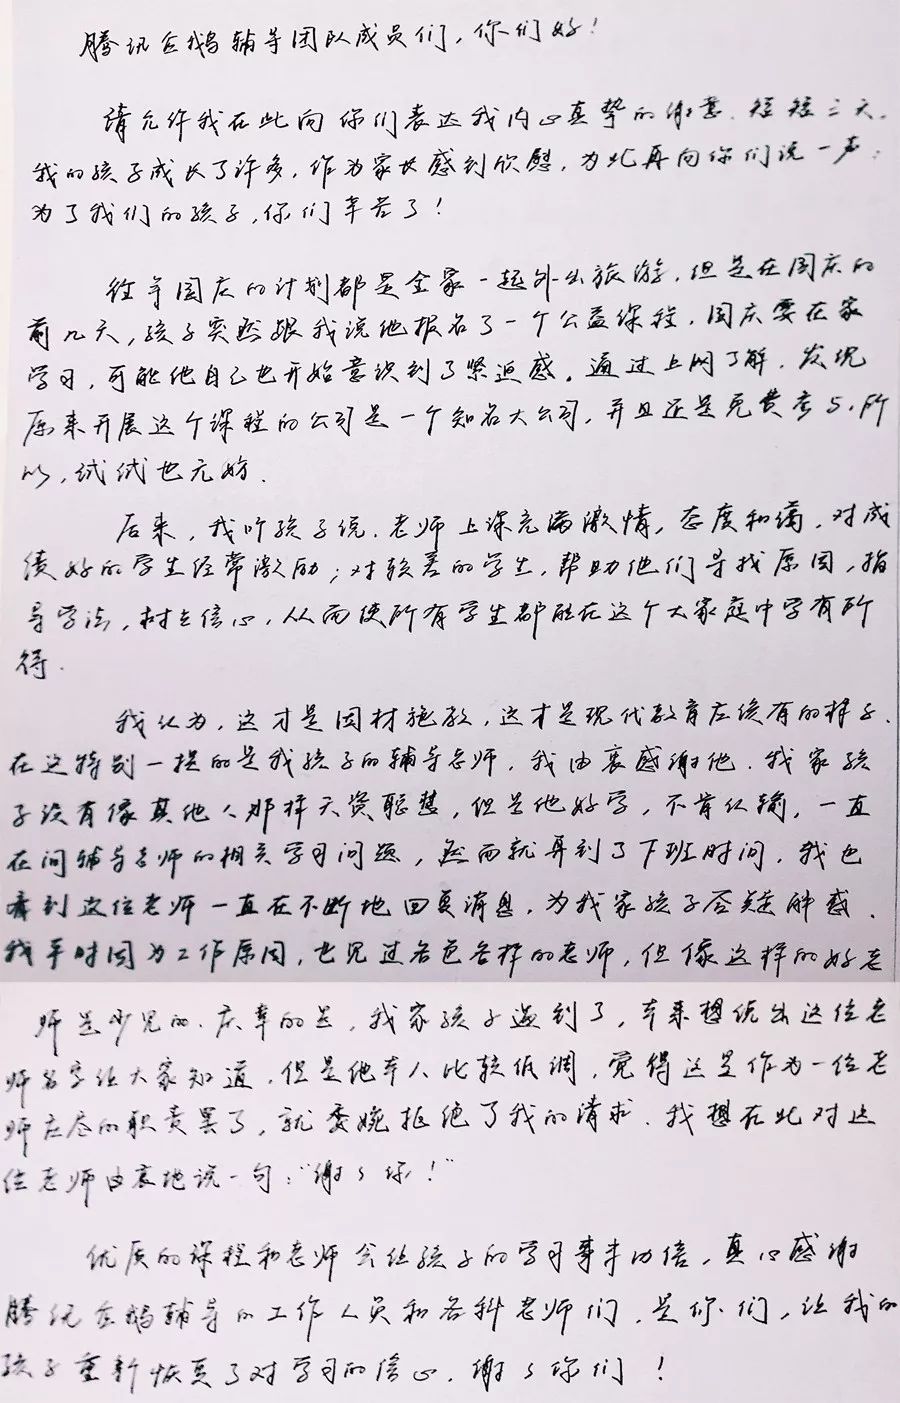 腾讯企鹅辅导团队成员们，你们好！
请允许我在此向你们表达我内心真挚的谢意．短短三天，
我的孩子成长了许多，作为家长感到欣慰，为此再向你们说一声：
为了我们的孩子，你们辛苦了！
往年国庆的计划都是全家一起外出旅游，但是在国庆的
前几天，孩子突然跟我说他报名了一个公益课程，国庆要在家
学习，可能他自己也开始意识到了紧迫感。通过上网了解，发现
原来开展这个课程的公司是一个知名大公司，并且还是免费参与，所
以，试试也无妨．
后来，我听孩子说，老师上课充满激情，态度和蔼，对成
绩好的学生经常激励；对较差的学生，帮助他们寻找原因，指
导学法，树立信心，从而使所有学生都能在这个大家庭中学有所
得．
我认为，这才是因材施教，这才是现代教育应该有的样子．
在这特别一提的是我孩子的辅导老师，我由衷感谢他．我家孩
子没有像其他人那样天资聪慧，但是他好学，不肯认输，一直
在问辅导老师的相关学习问题，然而就算到了下班时间，我也
看到这位老师一直在不断地回复消息，为我家孩子答疑解惑．
我平时因为工作原因，也见过各色各样的老师，但像这样的好老
师是少见的．庆幸的是，我家孩子遇到了，本来想说出这位老
师名字让大家知道，但是他本人比较低调，觉得这是作为一位老
师应尽的职责罢了，就委婉拒绝了我的请求．我想在此对这
位老师由衷地说一句：“谢谢你！”
优质的课程和老师会让孩子的学习事半功倍，真心感谢
腾讯企鹅辅导的工作人员和各科老师们，是你们，让我的
孩子重新恢复了对学习的信心．谢谢你们！